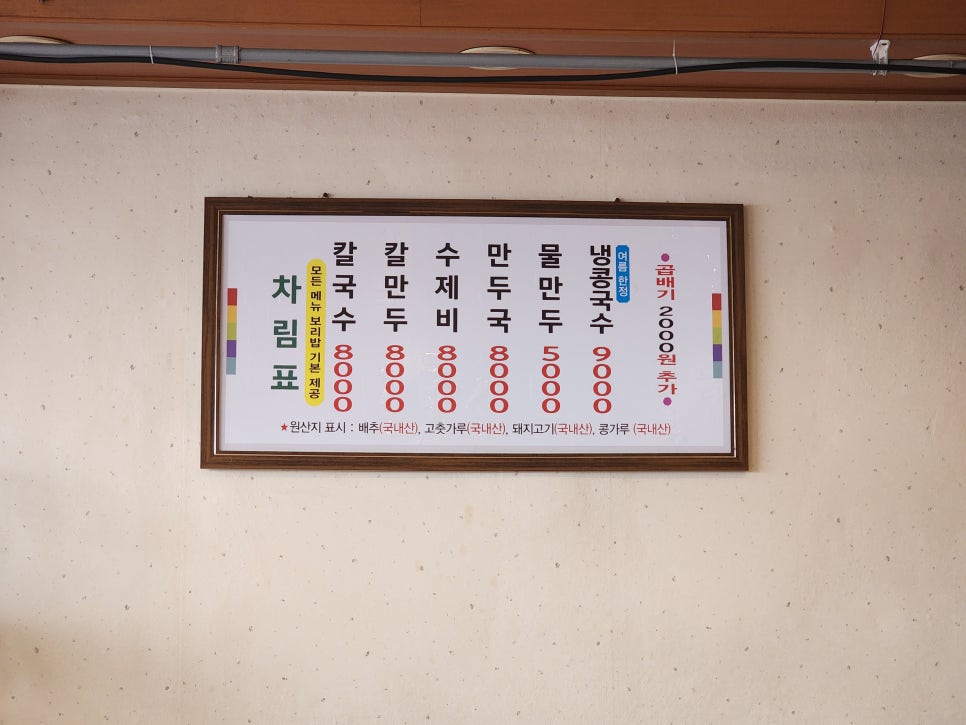 차림표
모든 메뉴 보리밥 기본 제공
칼국수 8000
칼만두 8000
수제비 8000
만두국 8000
물만두 5000
냉콩국수 9000
여름 한정
●곱배기 2000원 추가●
★원산지 표시 : 배추(국내산), 고춧가루(국내산), 돼지고기(국내산), 콩가루 (국내산)